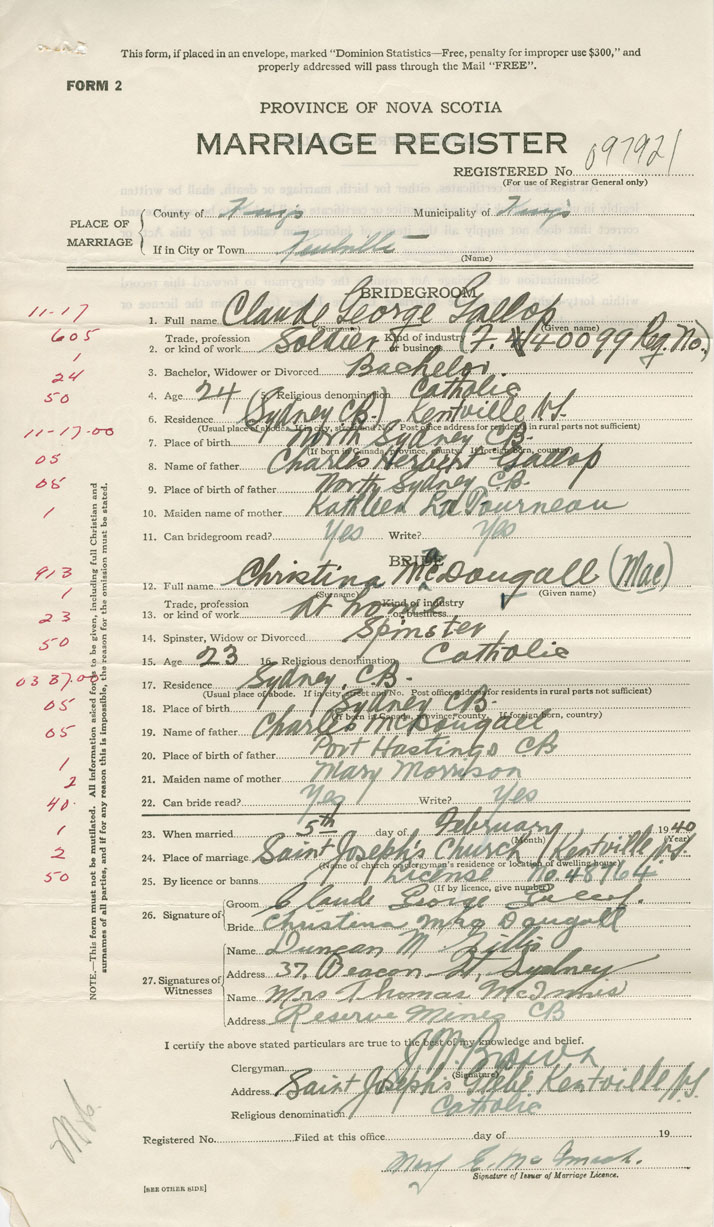 This form, if placed in an envelope, marked "Dominion Statistics—Free, penalty for improper use $300," and
properly addressed will pass through the Mail "FREE".
FORM 2
PROVINCE OF NOVA SCOTIA
MARRIAGE REGISTER
REGISTERED No. 097921
(For use of Registrar General only)
PLACE OF MARRIAGE
County of Kings Municipality of Kings
If in City or Town Kentville
(Name)
BRIDEGROOM
11-17
1. Full name Claude George Gallop
(Surname) (Given name)
605
2. Trade, profession or kind of work Soldier Kind of industry or business (F. 440099 Reg. No.)
1
3. Bachelor, Widower or Divorced Bachelor.
24
4. Age 24 5. Religious denomination Catholic
50
6. Residence (Sydney CB.) Kentville N.S.
(Usual place of abode. If in city, street and No. Post office address for residents in rural parts not sufficient)
11-17-00
7. Place of birth North Sydney CB.
(If born in Canada, province, county. If foreign born, country)
05
8. Name of father Charles Herbert Gallop
05
9. Place of birth of father North Sydney C.B.
1
10. Maiden name of mother Kathleen
11. Can bridegroom read? Yes Write? Yes
BRIDE
913
12. Full name Christina McDougall (Mac)
(Surname) (Given name)
1
13. Trade, profession or kind of work At home Kind of industry or business
23
14. Spinster, Widow or Divorced Spinster
50
15. Age 23 16. Religious denomination Catholic
03 87.00
17. Residence Sydney, C.B.
(Usual place of abode. If in city, street and No. Post office address for residents in rural parts not sufficient)
05
18. Place of birth Sydney CB.
(If born in Canada, province, county. If foreign born, country)
05
19. Name of father Charles McDougall
20. Place of birth of father Port Hastings CB
1
21. Maiden name of mother Mary Morrison
2
22. Can bride read? Yes Write? Yes
40.
1
23. When married 5th day of February 1940
(Month) (Year)
2
24. Place of marriage Saint Joseph's Church, Kentville N.S.
(Name of church or clergyman's residence or location of dwelling house)
50
25. By licence or banns License No. 48764
(If by licence, give number)
26. Signature of
Groom Claude George
Bride Christina Dougall
27. Signatures of Witnesses
Name Duncan M Gillis
Address 37, Beacon St, Sydney
Name Mrs Thomas McInnis
Address Reserve Mines CB
I certify the above stated particulars are true to the best of my knowledge and belief.
Clergyman J.H. Brown
(Signature)
Address Saint Joseph's Glebe, Kentville N.S.
Religious denomination Catholic
Registered No. Filed at this office day of 19
E. Mc
Signature of Issuer of Marriage Licence.
[SEE OTHER SIDE]
NOTE.—This form must not be mutilated. All information asked for is to be given, including full Christian and
surnames of all parties, and if for any reason this is impossible, the reason for the omission must be stated.